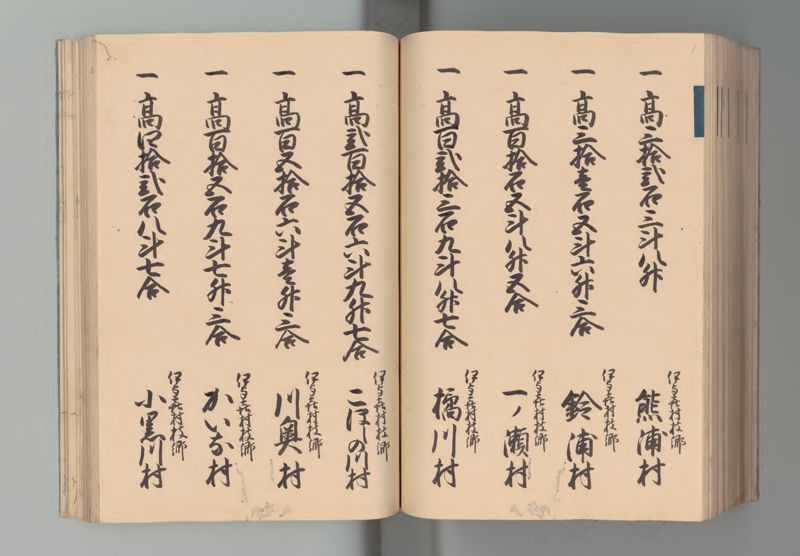 一 高三拾弐石三斗八升
伊与喜村枝郷
熊浦村
一 高三拾壱石五斗六升三合
伊与喜村枝郷
鈴浦村
一 高百拾石五斗八升五合
伊与喜村枝郷
一ノ瀬村
一 高百弐拾三石九斗八升七合
伊与喜村枝郷
橘川村
一 高弐百拾五石六斗九升七合
伊与喜村枝郷
こほの川村
一 高百五拾石六斗壱升三合
伊与喜村枝郷
川奥村
一 高百拾五石九斗七升三合
伊与喜村枝郷
かいな村
一 高四拾弐石八斗七合
伊与喜村枝郷
小黒川村